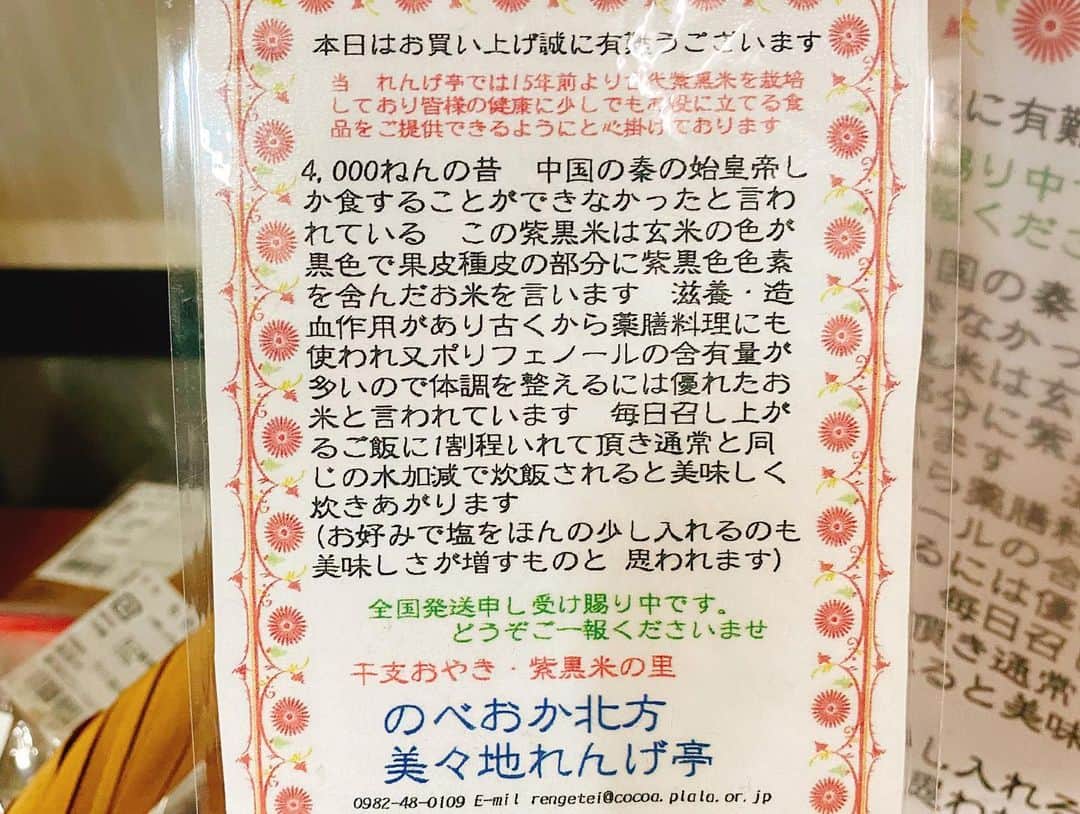 本日はお買い上げ誠に有難うございます
当　れんげ亭では15年前より古代紫黒米を栽培
しており皆様の健康に少しでもお役に立てる食
品をご提供できるようにと心掛けております
4,000ねんの昔　中国の秦の始皇帝し
か食することができなかったと言わ
れている　この紫黒米は玄米の色が
黒色で果皮種皮の部分に紫黒色色素
を含んだお米を言います　滋養・造
血作用があり古くから薬膳料理にも
使われ又ポリフェノールの含有量が
多いので体調を整えるには優れたお
米と言われています　毎日召し上が
るご飯に1割程いれて頂き通常と同
じの水加減で炊飯されると美味しく
炊きあがります
(お好みで塩をほんの少し入れるのも
美味しさが増すものと 思われます)
全国発送申し受け賜り中です。
どうぞご一報くださいませ
干支おやき・紫黒米の里
のべおか北方
美々地れんげ亭
0982-48-0109 E-mil rengetei@cocoa.plala.or.jp